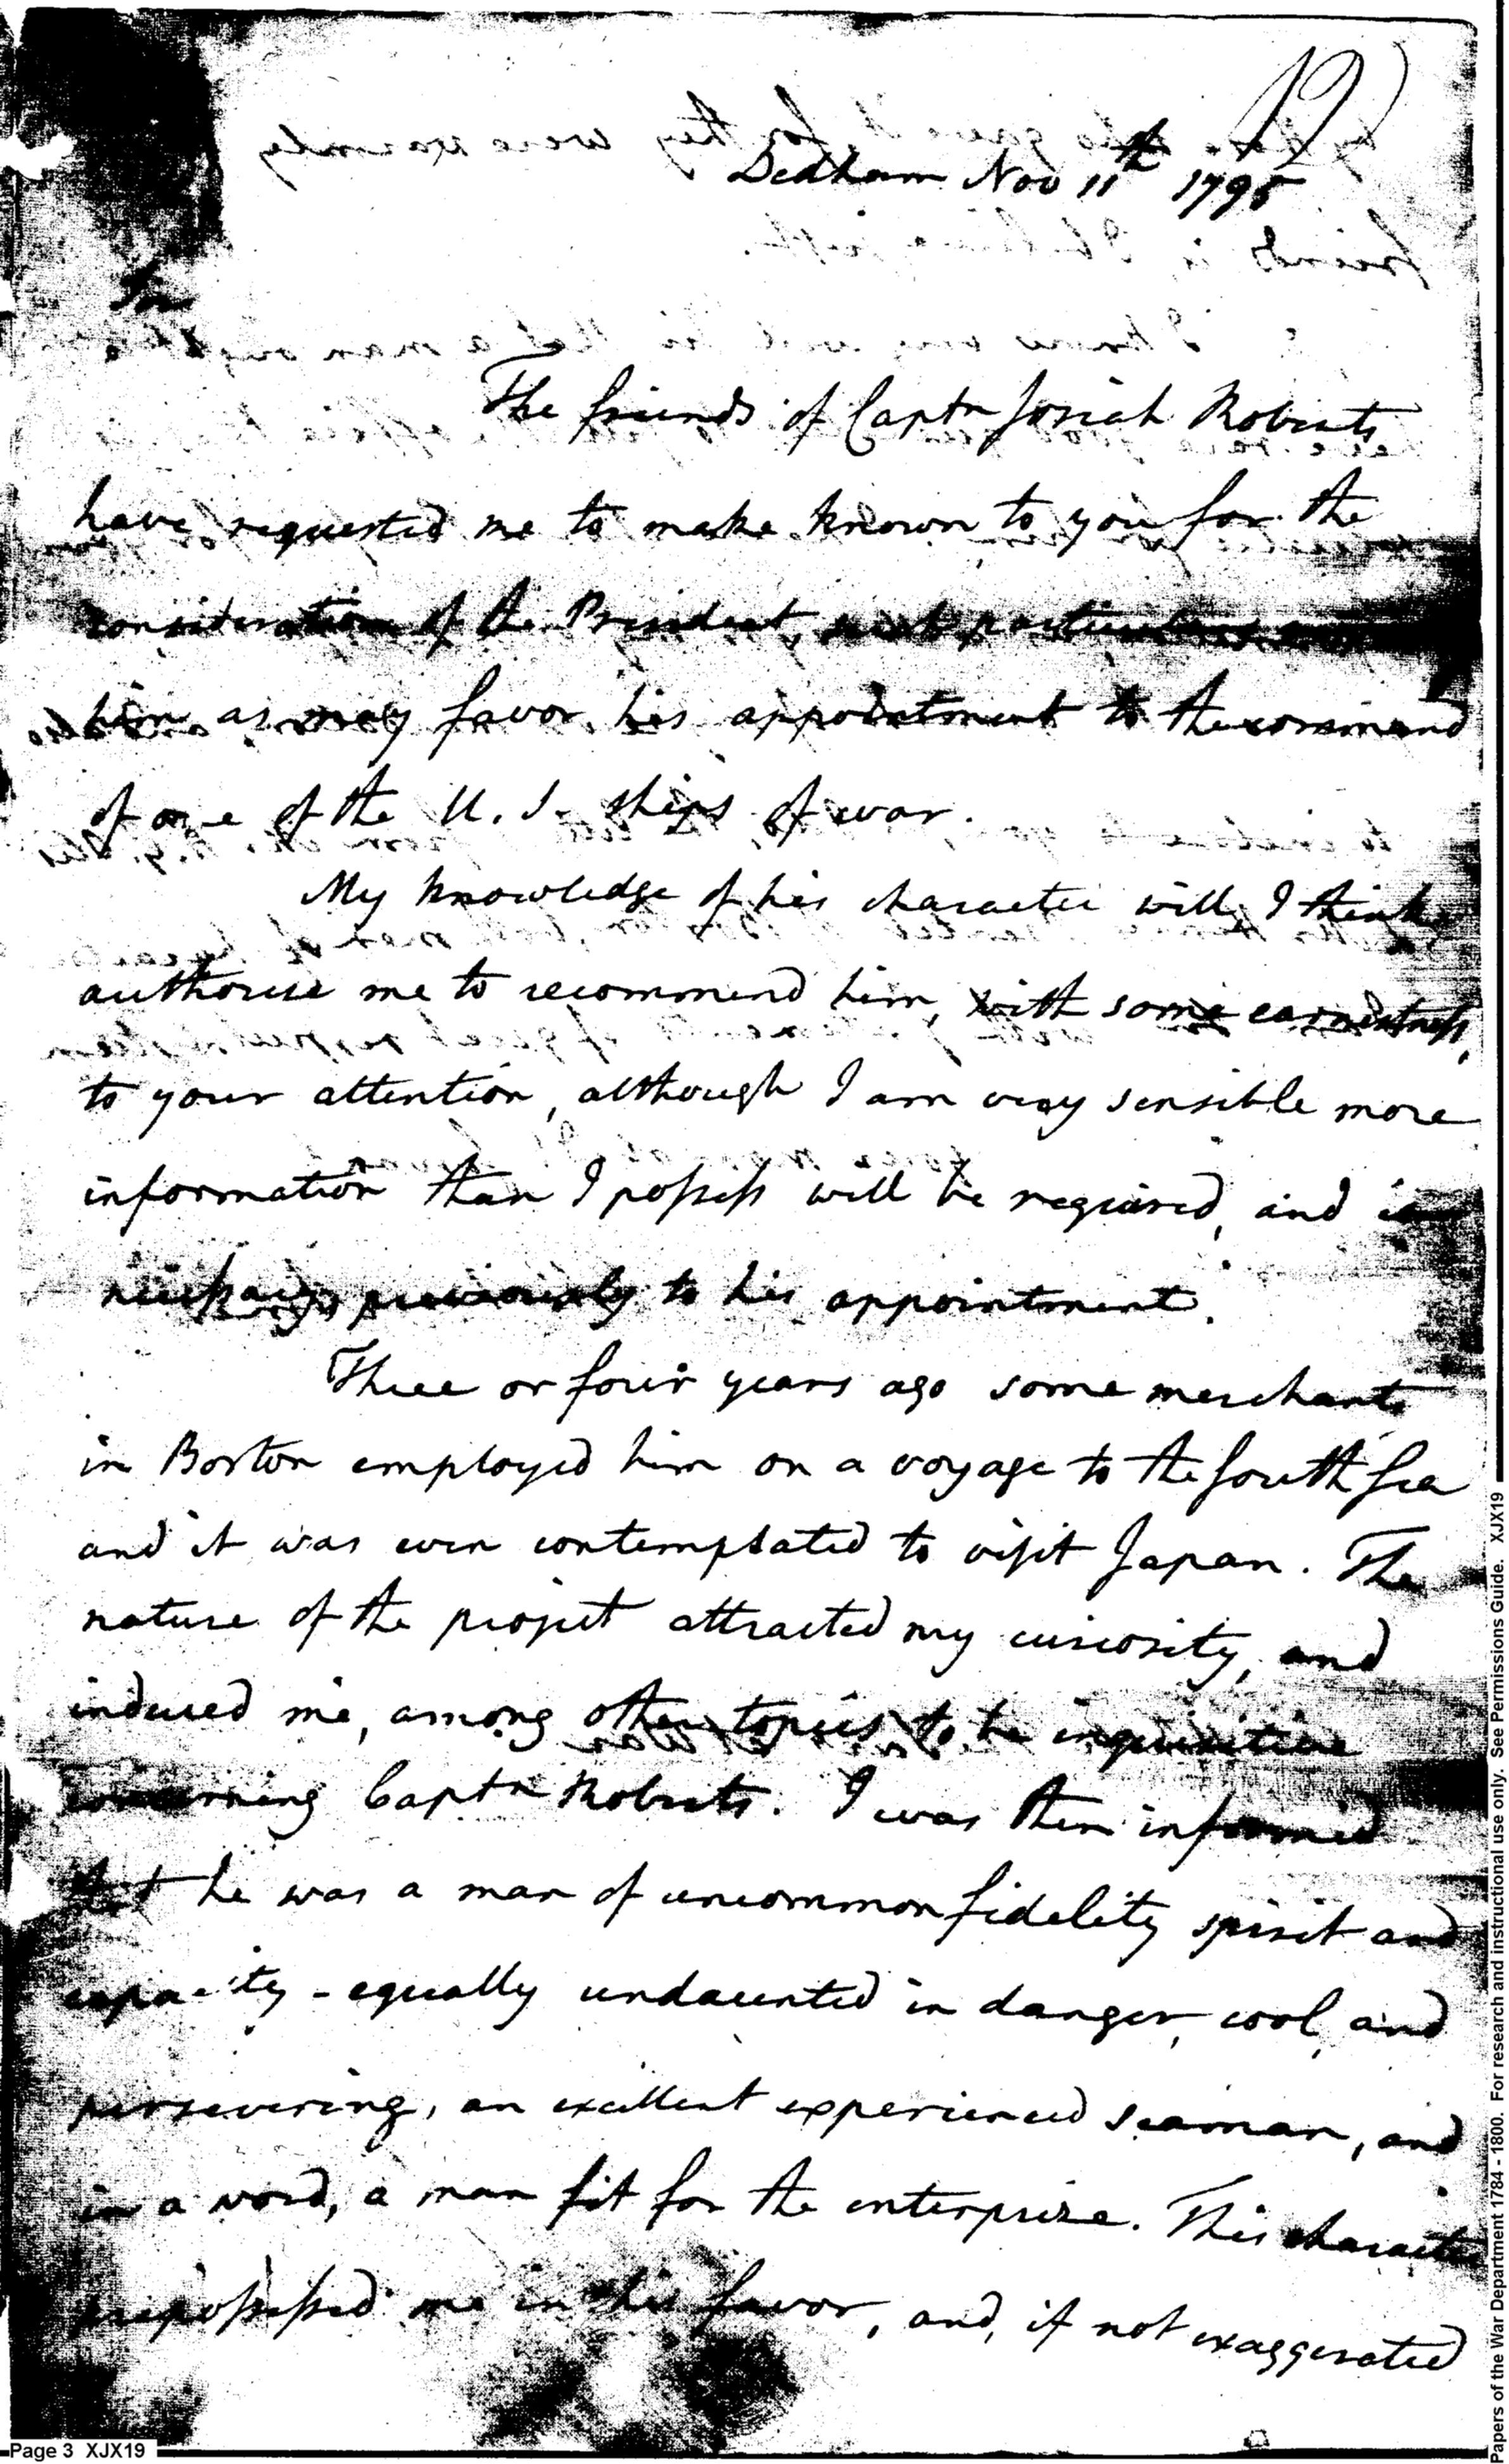 12)
Dedham Nov 11th 1798
Sir
The friends of Captn Josiah Roberts
have requested me to make known to you for the
consideration of the President, such particulars
him as may favor his appointment to the command
of one of the U. S. ships of war.
My knowledge of his character will, I think,
authorise me to recommend him, with some earnestness,
to your attention, although I am very sensible more
information than I possess will be required, and is
necessary, previously to his appointment.
Three or four years ago some merchants
in Boston employed him on a voyage to the South Sea
and it was even contemplated to visit Japan. The
nature of the project attracted my curiosity, and
induced me, among other topics, to be inquisitive
concerning Captn Roberts. I was then informed
that he was a man of uncommon fidelity spirit and
capacity - equally undaunted in danger, cool, and
persevering, an excellent experienced seaman, and
in a word, a man fit for the enterprize. This character
prepossessed me in his favor, and, if not exaggerated
Page 3 XJX19
Papers of the War Department 1784 - 1800. For research and instructional use only. See Permissions Guide. XJX19